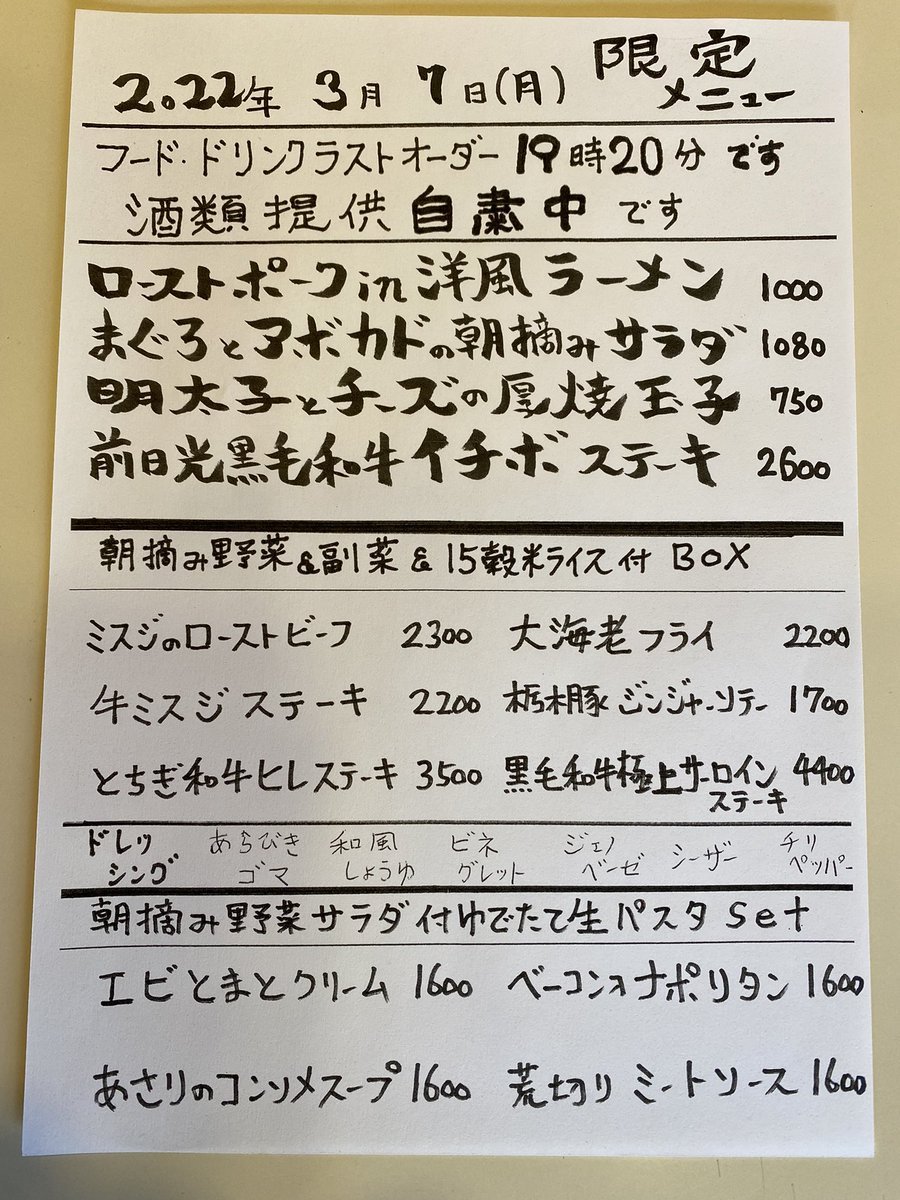 2022年 3月 7日(月) 限定メニュー
フード・ドリンクラストオーダー 19時20分 です
酒類提供 自粛中 です
ローストポークin洋風ラーメン 1000
まぐろとアボカドの朝摘みサラダ 1080
明太子とチーズの厚焼玉子 750
前日光黒毛和牛イチボステーキ 2600
朝摘み野菜&副菜&15穀米ライス付 BOX
ミスジのローストビーフ 2300 大海老フライ 2200
牛ミスジステーキ 2200 栃木豚ジンジャーソテー 1700
とちぎ和牛ヒレステーキ 3500 黒毛和牛極上サーロインステーキ 4400
ドレッシング あらびきゴマ 和風しょうゆ ビネグレット ジェノベーゼ シーザー チリペッパー
朝摘み野菜サラダ付ゆでたて生パスタ Set
エビとまとクリーム 1600 ベーコンonナポリタン 1600
あさりのコンソメスープ 1600 荒切りミートソース 1600